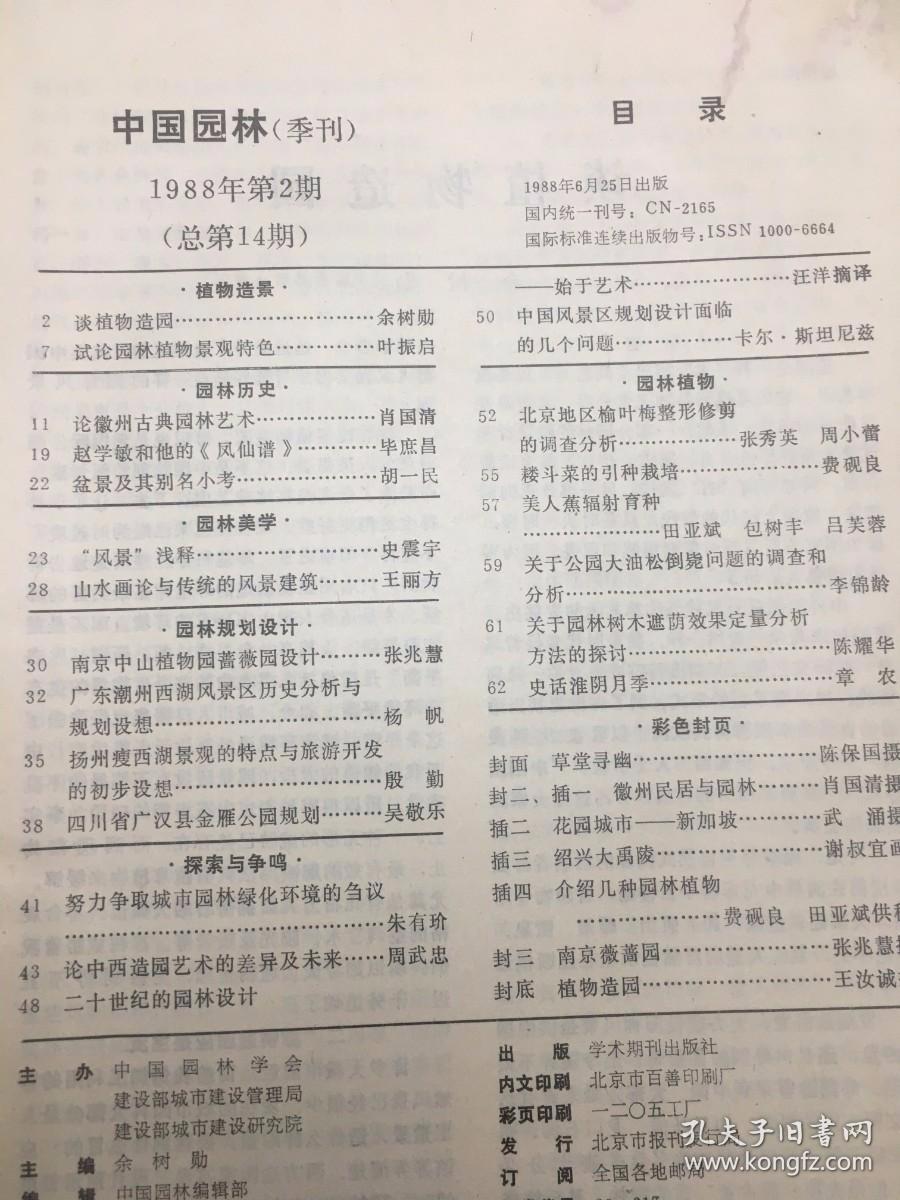 中国园林（季刊）
1988年第2期
（总第14期）
目 录
1988年6月25日出版
国内统一刊号：CN-2165
国际标准连续出版物号：ISSN 1000-6664
·植物造景·
2 谈植物造园…………………………余树勋
7 试论园林植物景观特色……………叶振启
·园林历史·
11 论徽州古典园林艺术………………肖国清
19 赵学敏和他的《凤仙谱》…………毕庶昌
22 盆景及其别名小考…………………胡一民
·园林美学·
23 “风景”浅释………………………史震宇
28 山水画论与传统的风景建筑………王丽方
·园林规划设计·
30 南京中山植物园蔷薇园设计………张兆慧
32 广东潮州西湖风景区历史分析与
规划设想……………………………杨 帆
35 扬州瘦西湖景观的特点与旅游开发
的初步设想…………………………殷 勤
38 四川省广汉县金雁公园规划………吴敬乐
·探索与争鸣·
41 努力争取城市园林绿化环境的刍议
……………………………………朱有玠
43 论中西造园艺术的差异及未来……周武忠
48 二十世纪的园林设计
——始于艺术……………………汪洋摘译
50 中国风景区规划设计面临
的几个问题………………卡尔·斯坦尼兹
·园林植物·
52 北京地区榆叶梅整形修剪
的调查分析………………张秀英 周小蕾
55 耧斗菜的引种栽培…………………费砚良
57 美人蕉辐射育种
…………………田亚斌 包树丰 吕芙蓉
59 关于公园大油松倒毙问题的调查和
分析…………………………………李锦龄
61 关于园林树木遮荫效果定量分析
方法的探讨…………………………陈耀华
62 史话淮阴月季………………………章 农
·彩色封页·
封面 草堂寻幽………………………陈保国摄
封二、插一 徽州民居与园林………肖国清摄
插二 花园城市——新加坡…………武 涌摄
插三 绍兴大禹陵……………………谢叔宜画
插四 介绍几种园林植物
…………………费砚良 田亚斌供稿
封三 南京蔷薇园……………………张兆慧
封底 植物造园………………………王汝诚
主 办 中国园林学会
建设部城市建设管理局
建设部城市建设研究院
主 编 余树勋
编 辑 中国园林编辑部
出 版 学术期刊出版社
内文印刷 北京市百善印刷厂
彩页印刷 一二〇五工厂
发 行 北京市报刊发行局
订 阅 全国各地邮局
孔夫子旧书网
www.kongfz.com